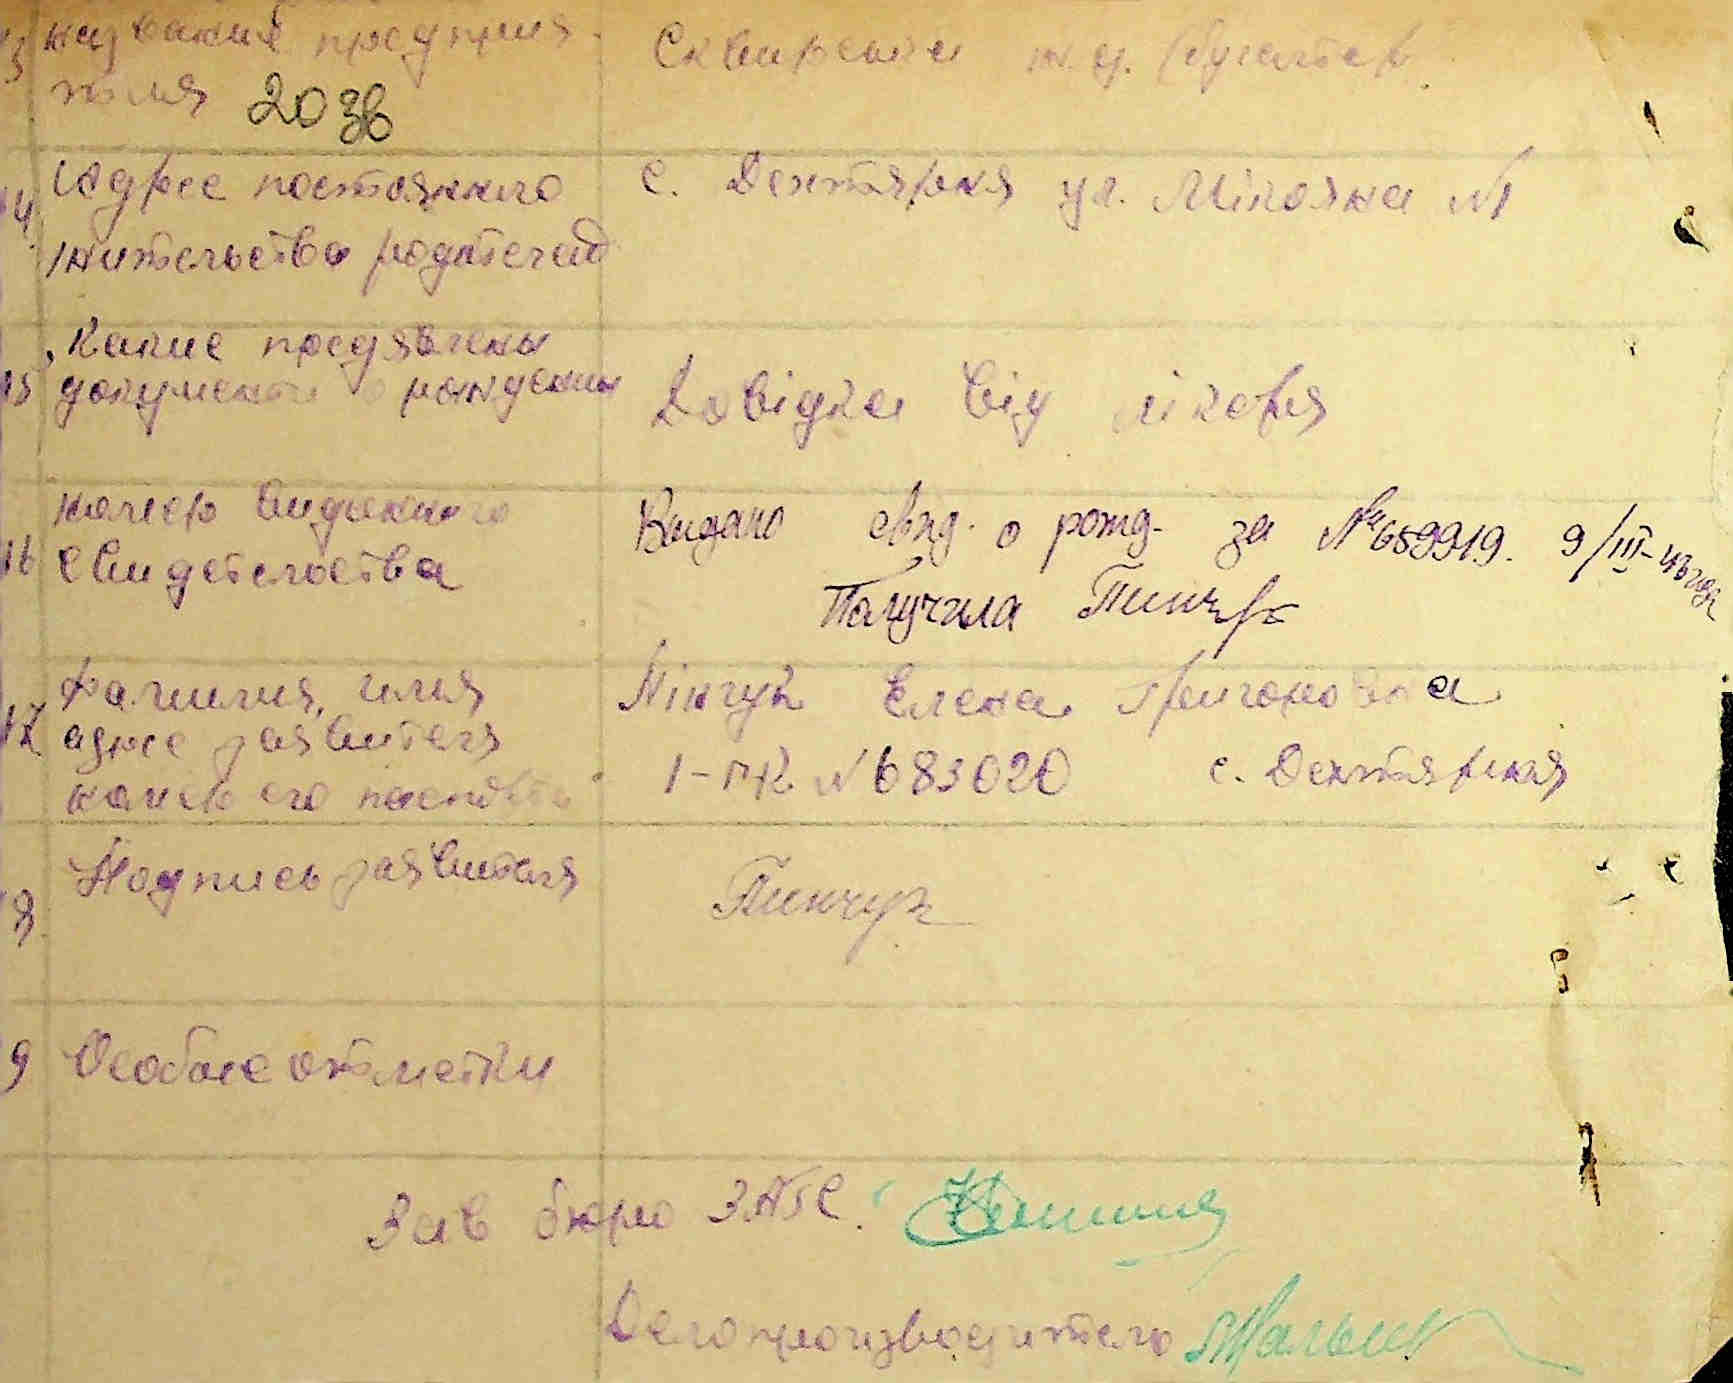 13 название предприя-
тия 20 зв
Сквирська
14 Адрес постоянного
жительства родителей
с. Дехтярня ул. Мікояна №1
15 Какие предявлены
документы о рождении
Довідка від лікаря
16 номер выданного
свидетельства
Выдано свид. о рожд. за №689919. 9/III-45 года
Получила Пинчук
17 Фамилия, имя
адрес заявителя
номер его паспорта
Пінчук Елена
1-ПК №683020 с. Дехтярня
18 Подпись заявителя
Пинчук
19 Особые отметки
Зав бюро ЗАГС.
Делопроизводитель